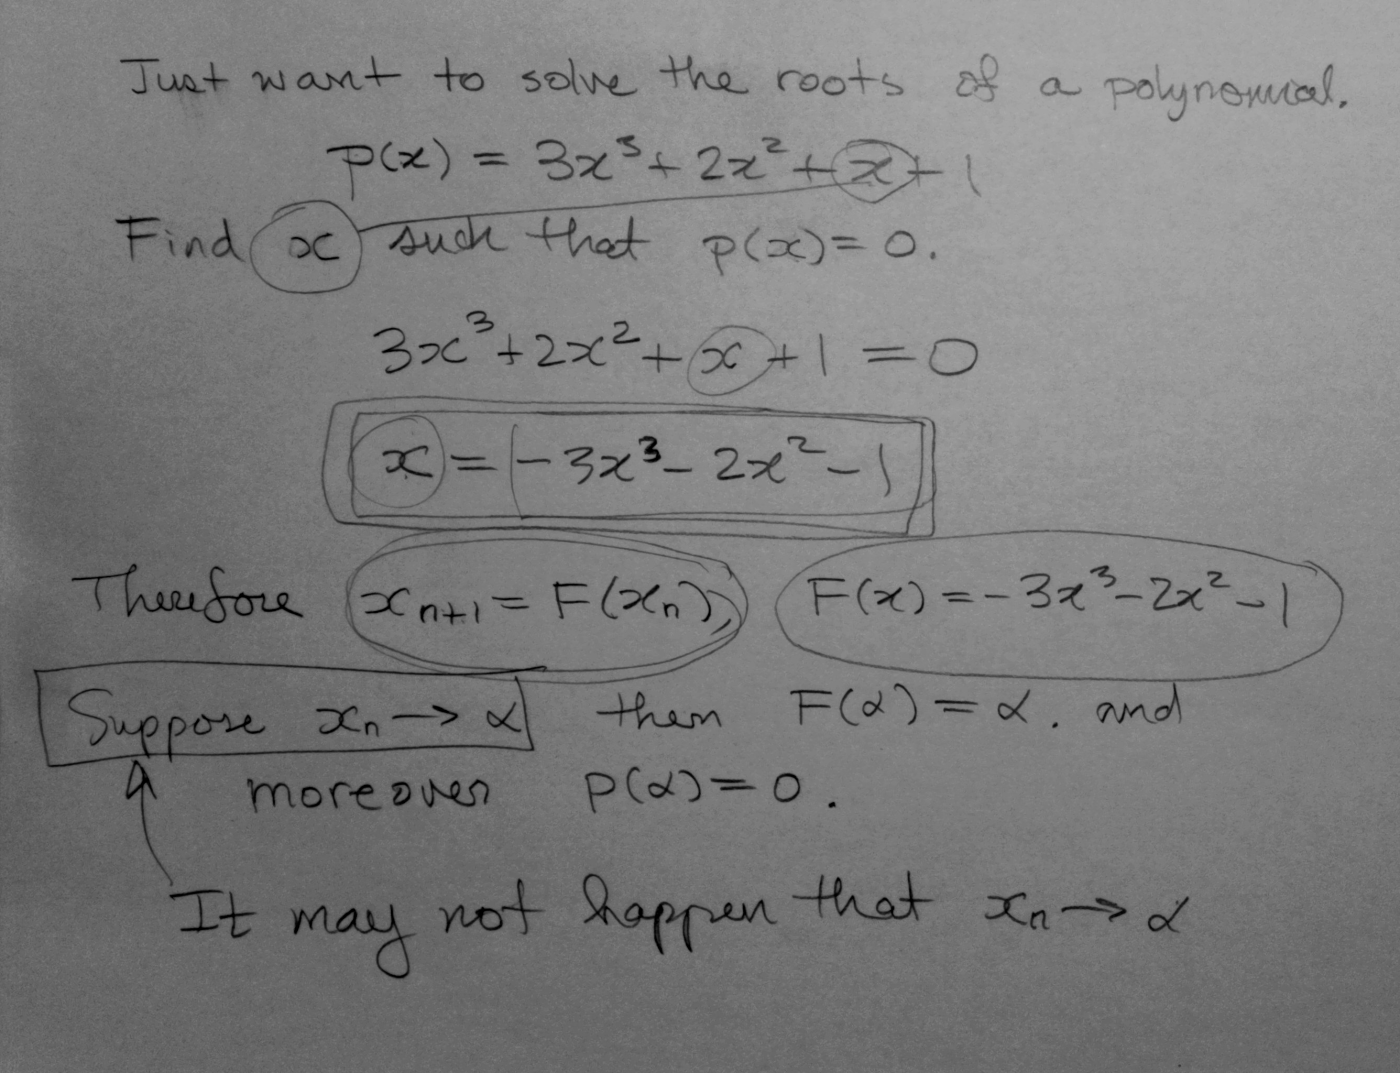 Just want to solve the roots of a polynomial.
p(x) = 3x³ + 2x² + x + 1
Find x such that p(x) = 0.
3x³ + 2x² + x + 1 = 0
x = -3x³ - 2x² - 1
Therefore xₙ₊₁ = F(xₙ), F(x) = -3x³ - 2x² - 1
Suppose xₙ → α then F(α) = α. and
moreover p(α) = 0.
It may not happen that xₙ → α